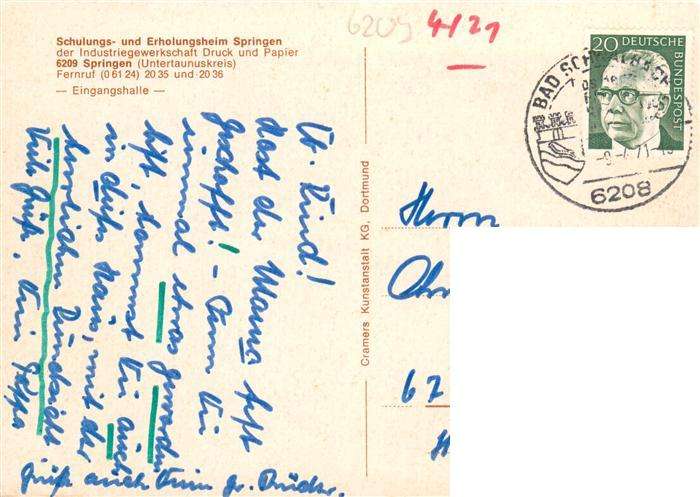 Schulungs- und Erholungsheim Springen
der Industriegewerkschaft Druck und Papier
6209 Springen (Untertaunuskreis)
Fernruf (0 61 24) 20 35 und 20 36
— Eingangshalle —
6209
4/21
20 DEUTSCHE
BUNDESPOST
BAD SCHWALBACH
6208
Cramers Kunstanstalt KG, Dortmund
Herrn
62
Lb. Kind!
Hast der Mama jetzt
geschafft! – Wenn Du
einmal etwas geworden
bist, kommst Du auch
in dieses Haus, mit der
herrlichen
Viele Grüße. Dein Pappa
Grüße auch Deinen gr. Bruder.